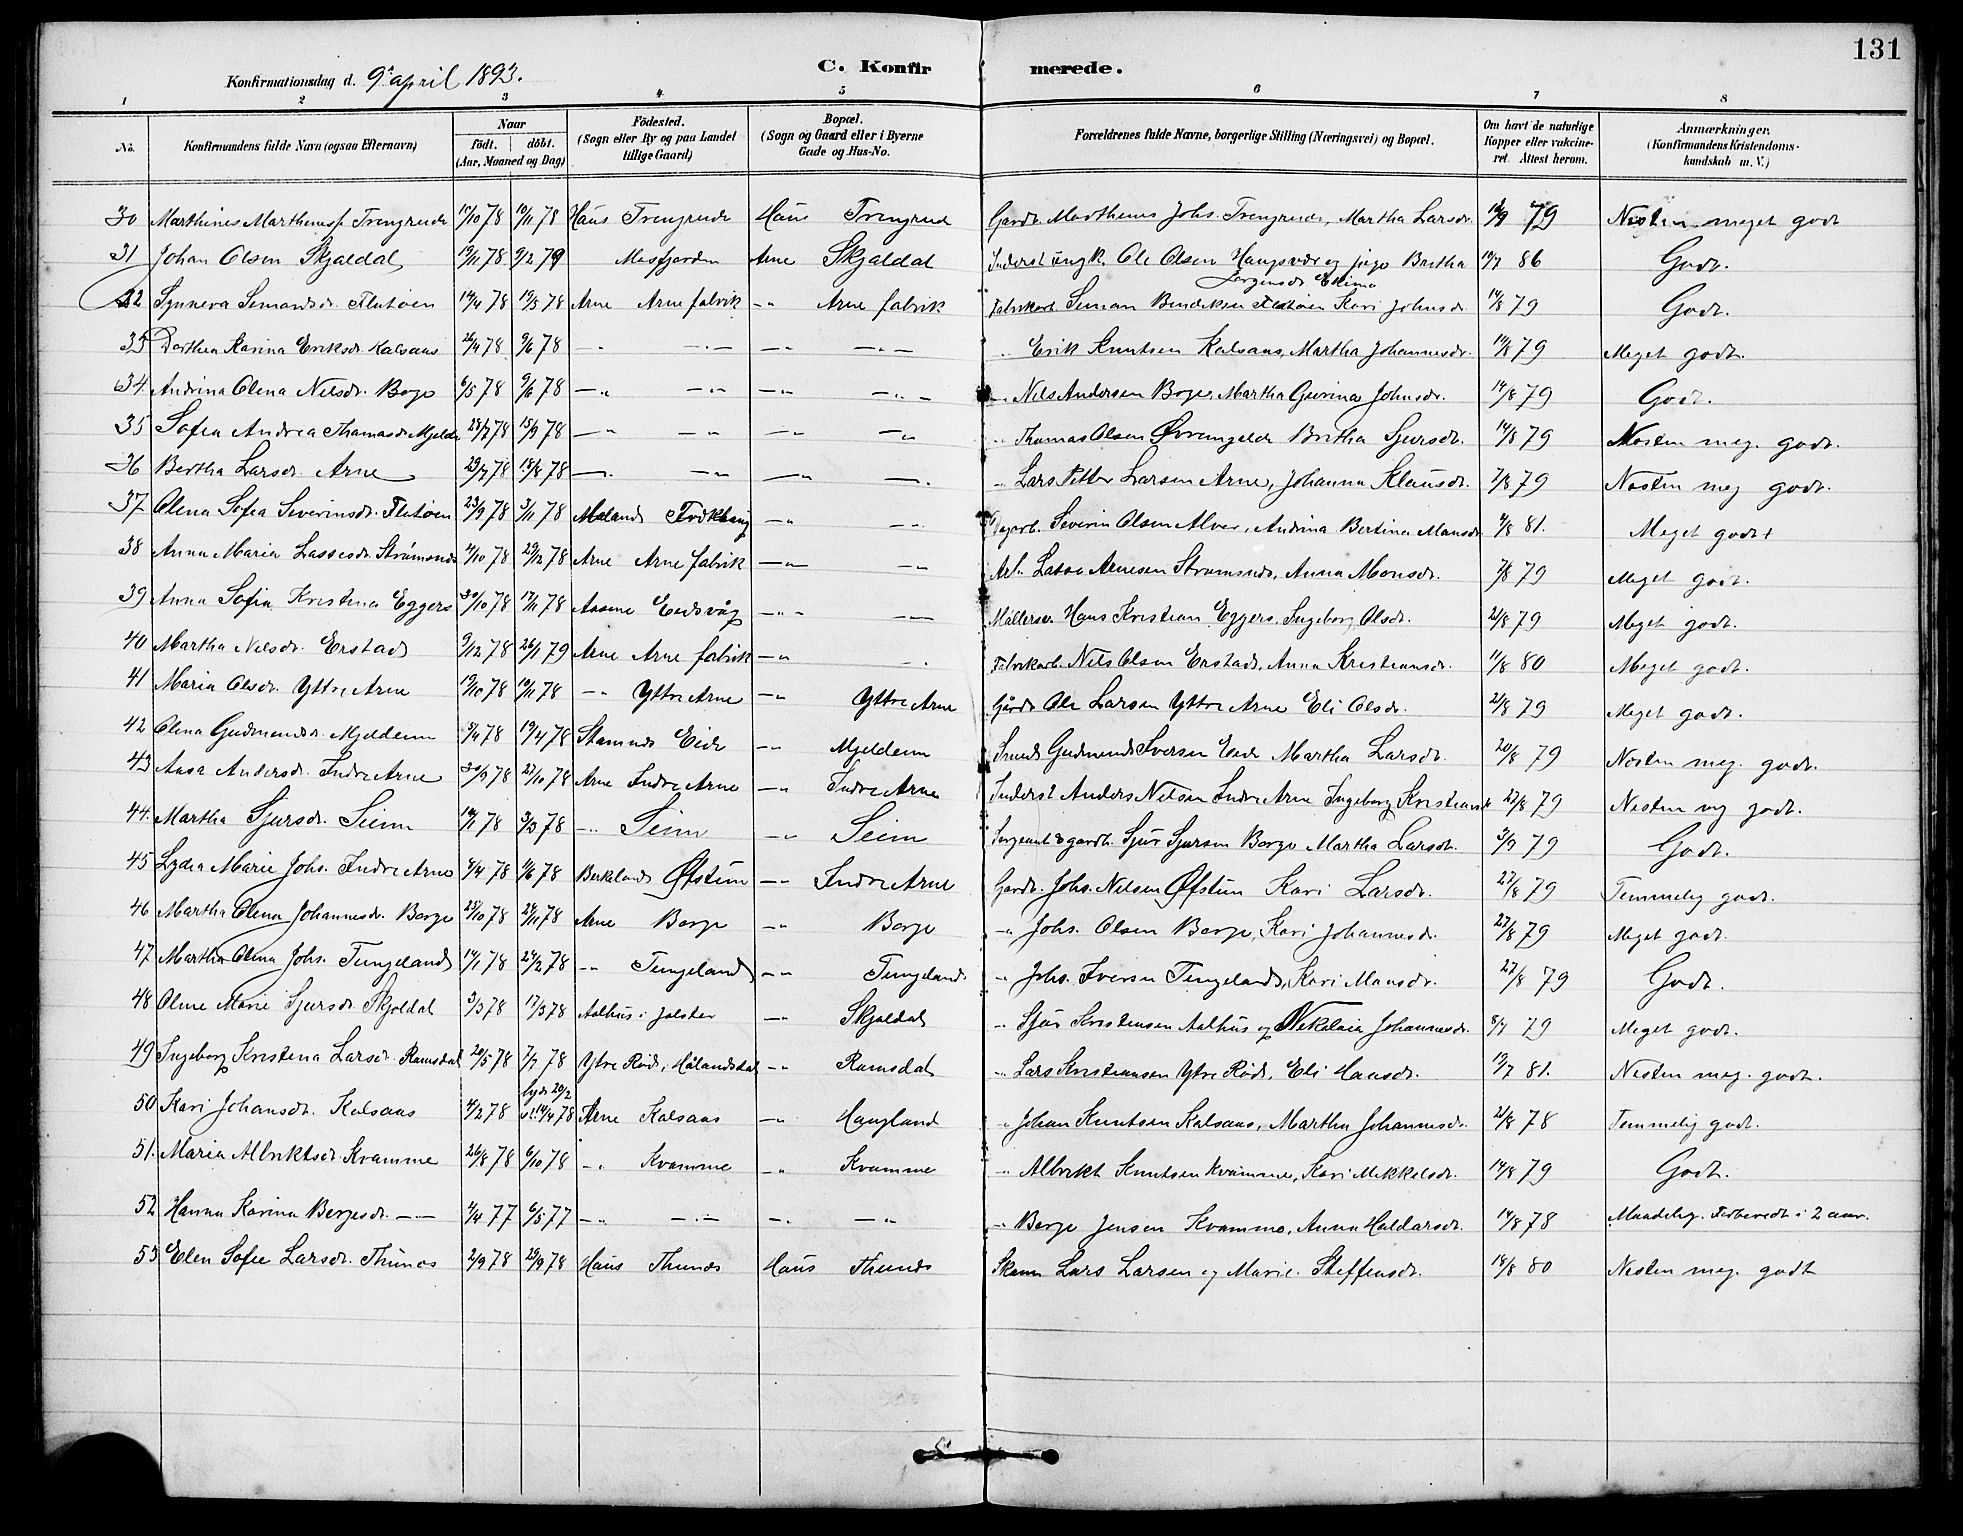 131
C. Konfirmerede.
Konfirmationsdag d. 9de april 1893.
1 2 3 4 5 6 7 8
No. Konfirmandens fulde Navn (ogsaa Efternavn) Naar födt. döbt. (Aar, Maaned og Dag) Födested. (Sogn eller By og paa Landet tillige Gaard) Bopæl. (Sogn og Gaard eller i Byerne Gade og Hus-No. Forældrenes fulde Navne, borgerlige Stilling (Næringsvei) og Bopæl. Om havt de naturlige Kopper eller vakcineret. Attest herom. Anmærkninger. (Konfirmandens Kristendomskundskab m. V.)
30 Marthines Marthinus. Trengereide 78 10/11 78 Haus Trengereide Haus Trengereid Gardb. Marthinus Johs. Trengereide, Martha Larsdr. 79 Nesten meget godt
31 Johan Olsen Skjaldal 19/11 78 9/2 79 Masfjorden Arne Skjaldal Inderst ungk. Ole Olsen Haugsvær og pige Britha Jørgensdr. 19/7 86 Godt.
32 Synneva Simonsdr. Flatøen 14/4 78 19/5 78 Arne Arne fabrik -"- Arne fabrik Fabrikarb. Simon Bendiksen Flatøen Kari Johnsdr. 14/8 79 Godt.
33 Dorthea Karina Eriksdr. Kalsaas 26/4 78 9/6 78 -"- -"- -"- -"- " Erik Knutsen Kalsaas, Martha Johannesdr. 14/8 79 Meget godt.
34 Andrina Olena Nilsdr. Borge 6/5 78 9/6 78 -"- -"- -"- -"- " Nils Andersen Borge, Martha Gurina Johnsdr. 14/8 79 Godt.
35 Sofia Andrea Thomasdr. Mjelde 28/7 78 15/9 78 -"- -"- -"- -"- " Thomas Olsen Øvremjelde Britha Sjursdr. 14/8 79 Nesten meg. godt.
36 Bertha Larsdr. Arne 29/7 78 18/8 78 -"- -"- -"- -"- " Lars Petter Larsen Arne, Johanna Klausdr. 7/8 79 Nesten meg godt.
37 Olena Sofia Severinsdr. Flatøen 23/9 78 3/11 78 Meland -"- -"- Severin Olsen Alver, Andrina Bertina Monsdr. 4/8 81. Meget godt
38 Anna Maria Lassesdr. Strømsnes 4/10 78 29/12 78 Arne Arne fabrik -"- -"- Arb. Lasse Arnesen Strømsnes, Anna Monsdr. 7/8 79 Meget godt.
39 Anna Sofia Kristina Eggers 30/10 78 17/11 78 Aasene Eidsvåg -"- -"- Møllersv. Hans Kristian Eggers, Ingeborg Olsdr. 21/8 79 Meget godt.
40 Martha Nilsdr. Erstad 9/12 78 26/1 79 Arne Arne fabrik -"- -"- Fabrikarb. Nils Olsen Erstad, Anna Kristiansdr. 11/8 80 Meget godt.
41 Maria Olsdr. Yttre Arne 19/10 78 10/11 78 -"- Yttre Arne -"- Yttre Arne Gårdb. Ole Larsen Yttre Arne Eli Olsdr. 21/8 79 Meget godt.
42 Olena Gudmundsdr. Mjeldeim 5/4 78 19/4 78 Stamnes Eide -"- Mjeldeim Smed Gudmund Iversen Eide Martha Larsdr. 20/8 79 Nesten meg. godt.
43 Aasa Andersdr. Indre Arne 30/9 78 27/10 78 Arne Indre Arne -"- Indre Arne Inderst Anders Nilsen Indre Arne Ingeborg Kristiansdr 27/8 79 Nesten meg godt.
44. Martha Sjursdr. Seim 14/1 78 3/3 78 -"- Seim -"- Seim Sergeant & gardb. Sjur Sjursen Borge Martha Larsdr. 3/9 79 Godt.
45 Lydia Marie Johs. Indre Arne 8/4 78 11/6 78 Birkeland Øfstun -"- Indre Arne Gardb. Johs. Nilsen Øfstun Kari Larsdr. 27/8 79 Temmelig godt.
46 Martha Olena Johannesdr. Borge 25/10 78 24/11 78 Arne Borge -"- Borge -"- Johs. Olsen Borge, Kari Johannesdr. 27/8 79 Meget godt.
47 Martha Olena Johs. Tungeland 14/1 78 24/2 78 -"- Tungeland -"- Tungeland -"- Johs. Iversen Tungeland, Kari Monsdr. 27/8 79 Godt.
48 Oline Marie Sjursdr. Skjoldal 3/3 78 17/3 78 Aalhus i Jølster -"- Skjoldal -"- Sjur Kristensen Aalhus og Nikolaia Johannesdr. 8/7 79 Meget godt.
49 Ingeborg Kristina Larsdr. Ramsdal 20/5 78 7/7 78 Ytre Rød, Hålandsdal -"- Ramsdal -"- Lars Kristiansen Ytre Rød, Eli Hansdr. 19/7 81. Nesten meg. godt.
50 Kari Johansdr. Kalsaas 4/2 78 hjd. 20/2 14/4 78 Arne Kalsaas -"- Haugland " Johan Knutsen Kalsaas, Martha Johannesdr. 21/8 78 Temmelig godt.
51. Maria Albriktsdr. Kvamme 26/8 78 6/10 78 -"- Kvamme -"- Kvamme -"- Albrikt Knutsen Kvamme, Kari Mikkelsdr. 14/8 79 Godt.
52 Hanna Karina Bergesdr. -"- 4/4 77 6/5 77 -"- -"- -"- -"- -"- Berge Jensen Kvamme, Anna Haldorsdr. 14/8 78 Maadelig. Forberedt i 2 aar.
53 Elen Sofie Larsdr. Thunes 2/9 78 29/9 78 Haus Thunes Haus Thunes Lars Larsen og Marie Steffensdr. 18/8 80 Nesten meg. godt